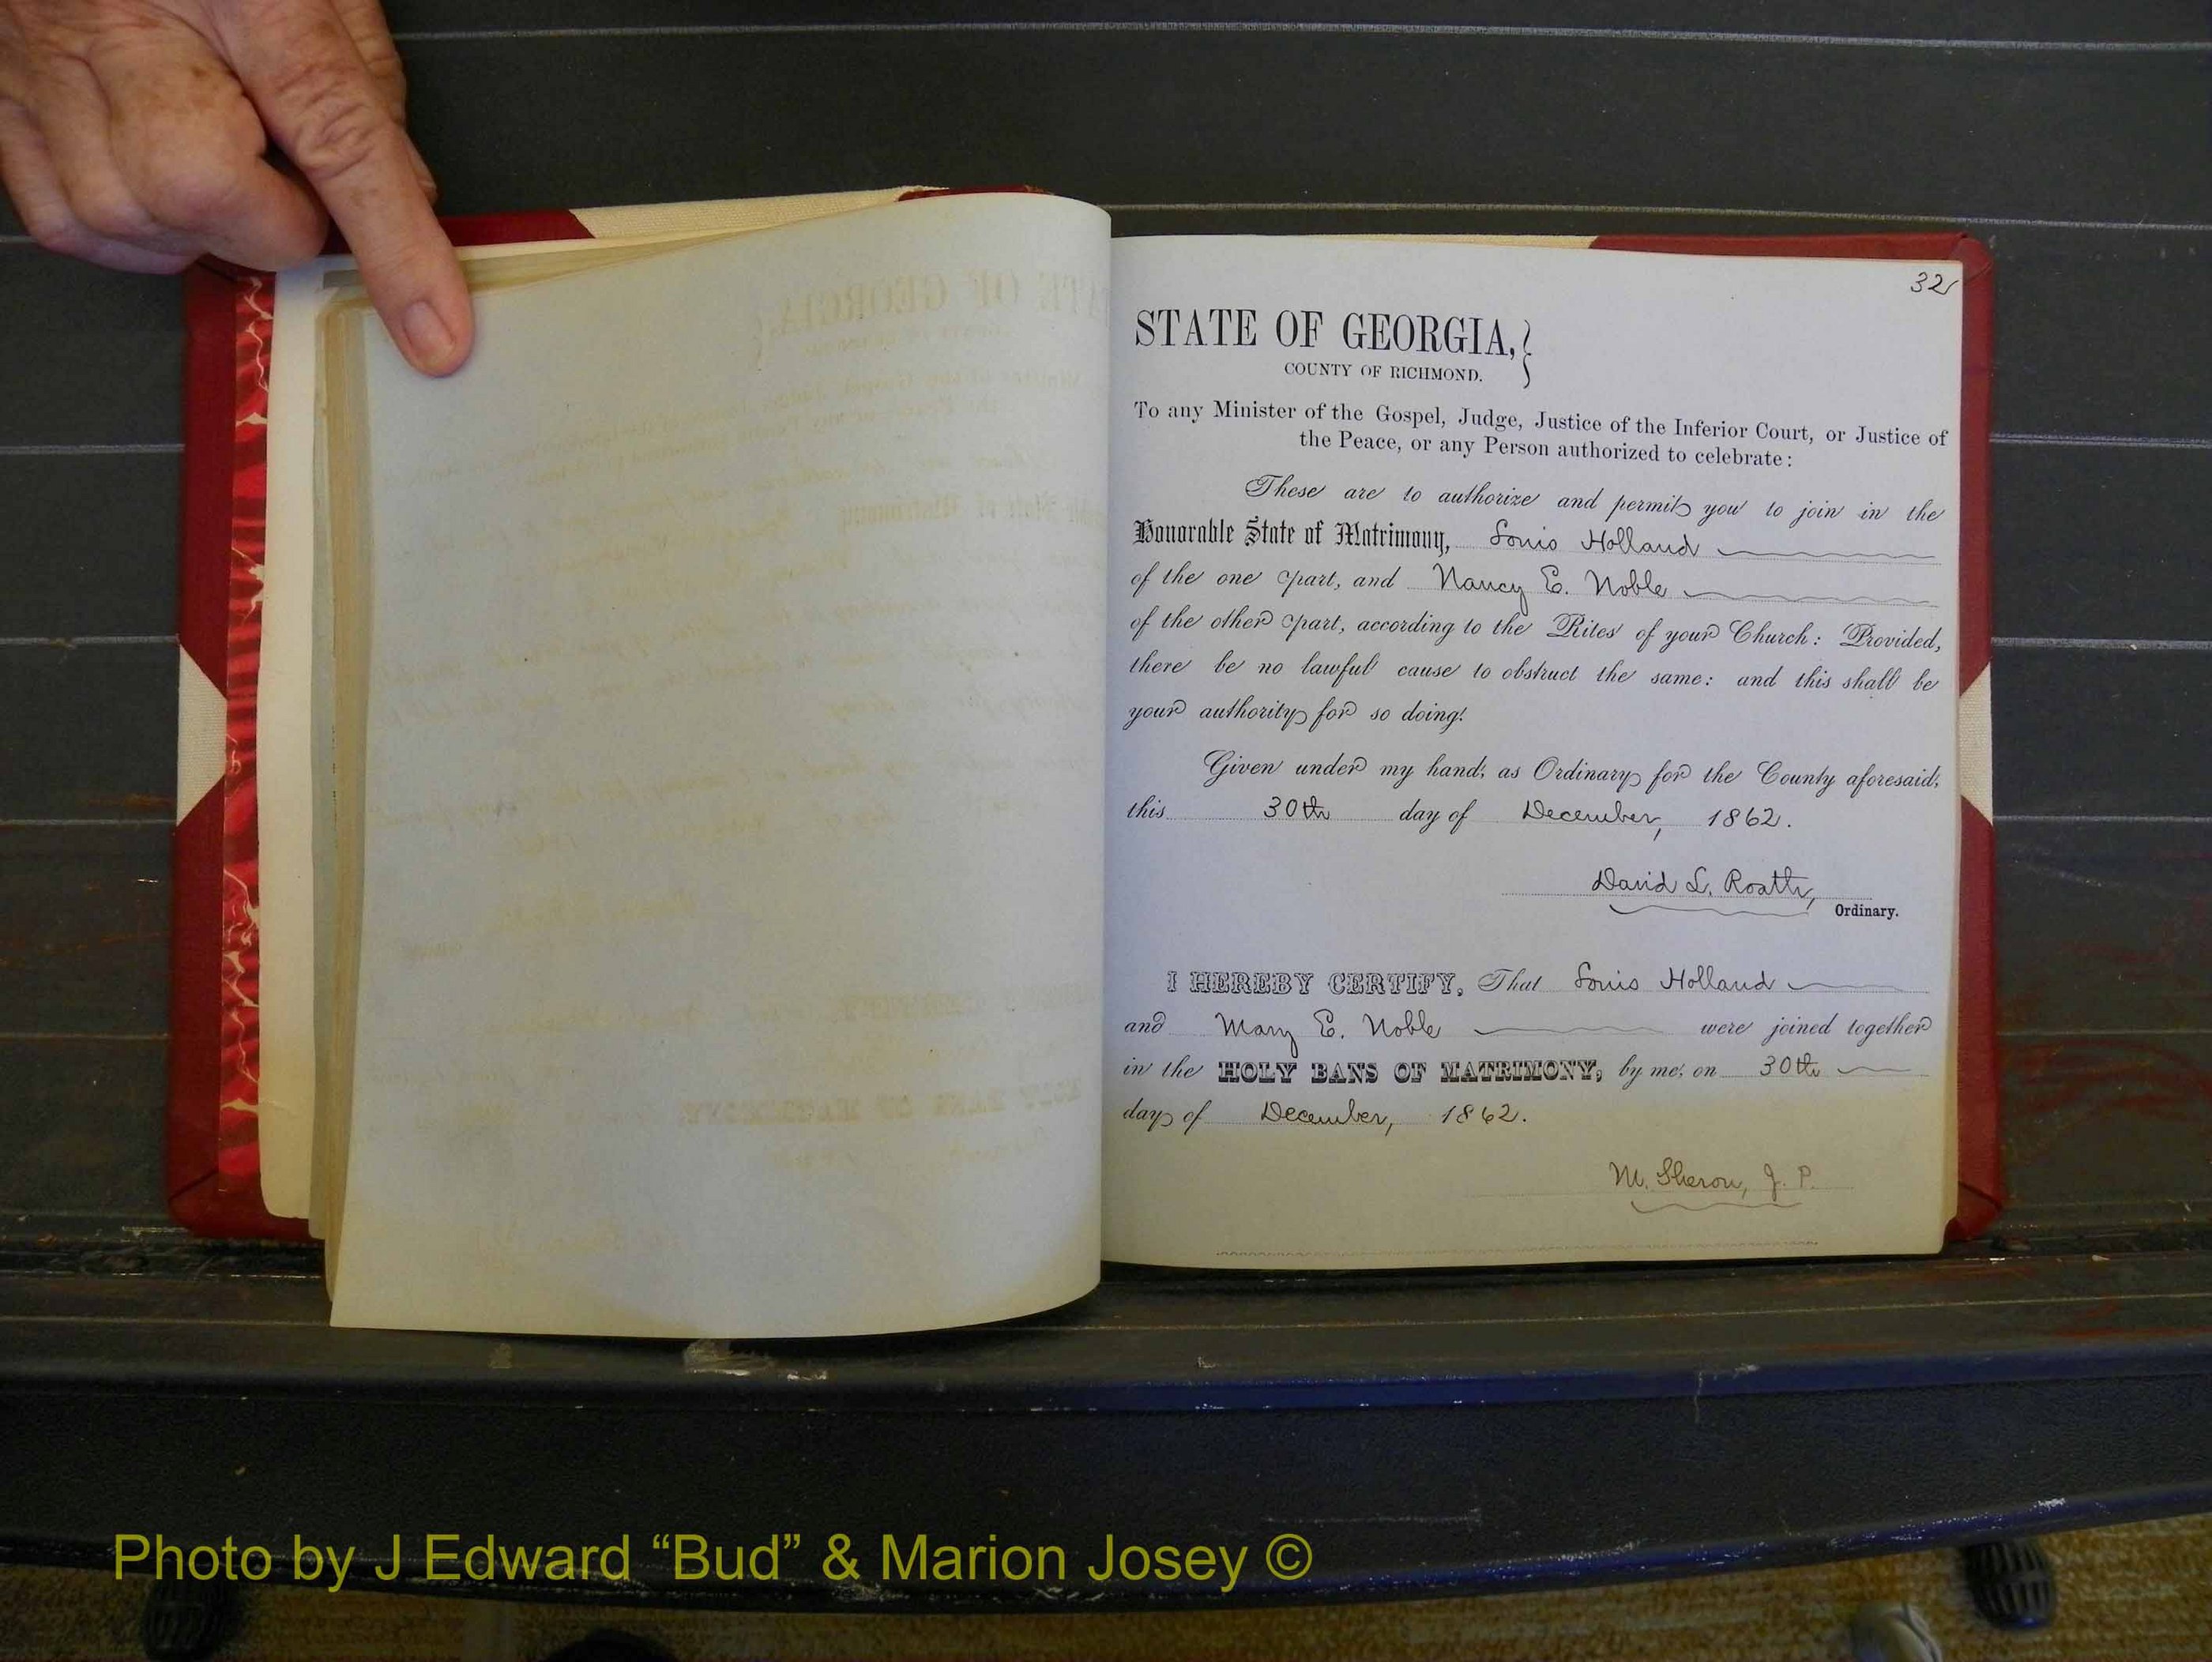 32
STATE OF GEORGIA,
COUNTY OF RICHMOND.
To any Minister of the Gospel, Judge, Justice of the Inferior Court, or Justice of
the Peace, or any Person authorized to celebrate:
These are to authorize and permit you to join in the
Honorable State of Matrimony, Louis Holland
of the one part, and Nancy E. Noble
of the other part, according to the Rites of your Church: Provided,
there be no lawful cause to obstruct the same: and this shall be
your authority for so doing.
Given under my hand, as Ordinary for the County aforesaid,
this 30th day of December, 1862.
David L. Roath,
Ordinary.
I HEREBY CERTIFY, That Louis Holland
and Mary E. Noble were joined together
in the HOLY BANS OF MATRIMONY, by me, on 30th
day of December, 1862.
M. Sheron, J. P.
Photo by J Edward “Bud” & Marion Josey ©